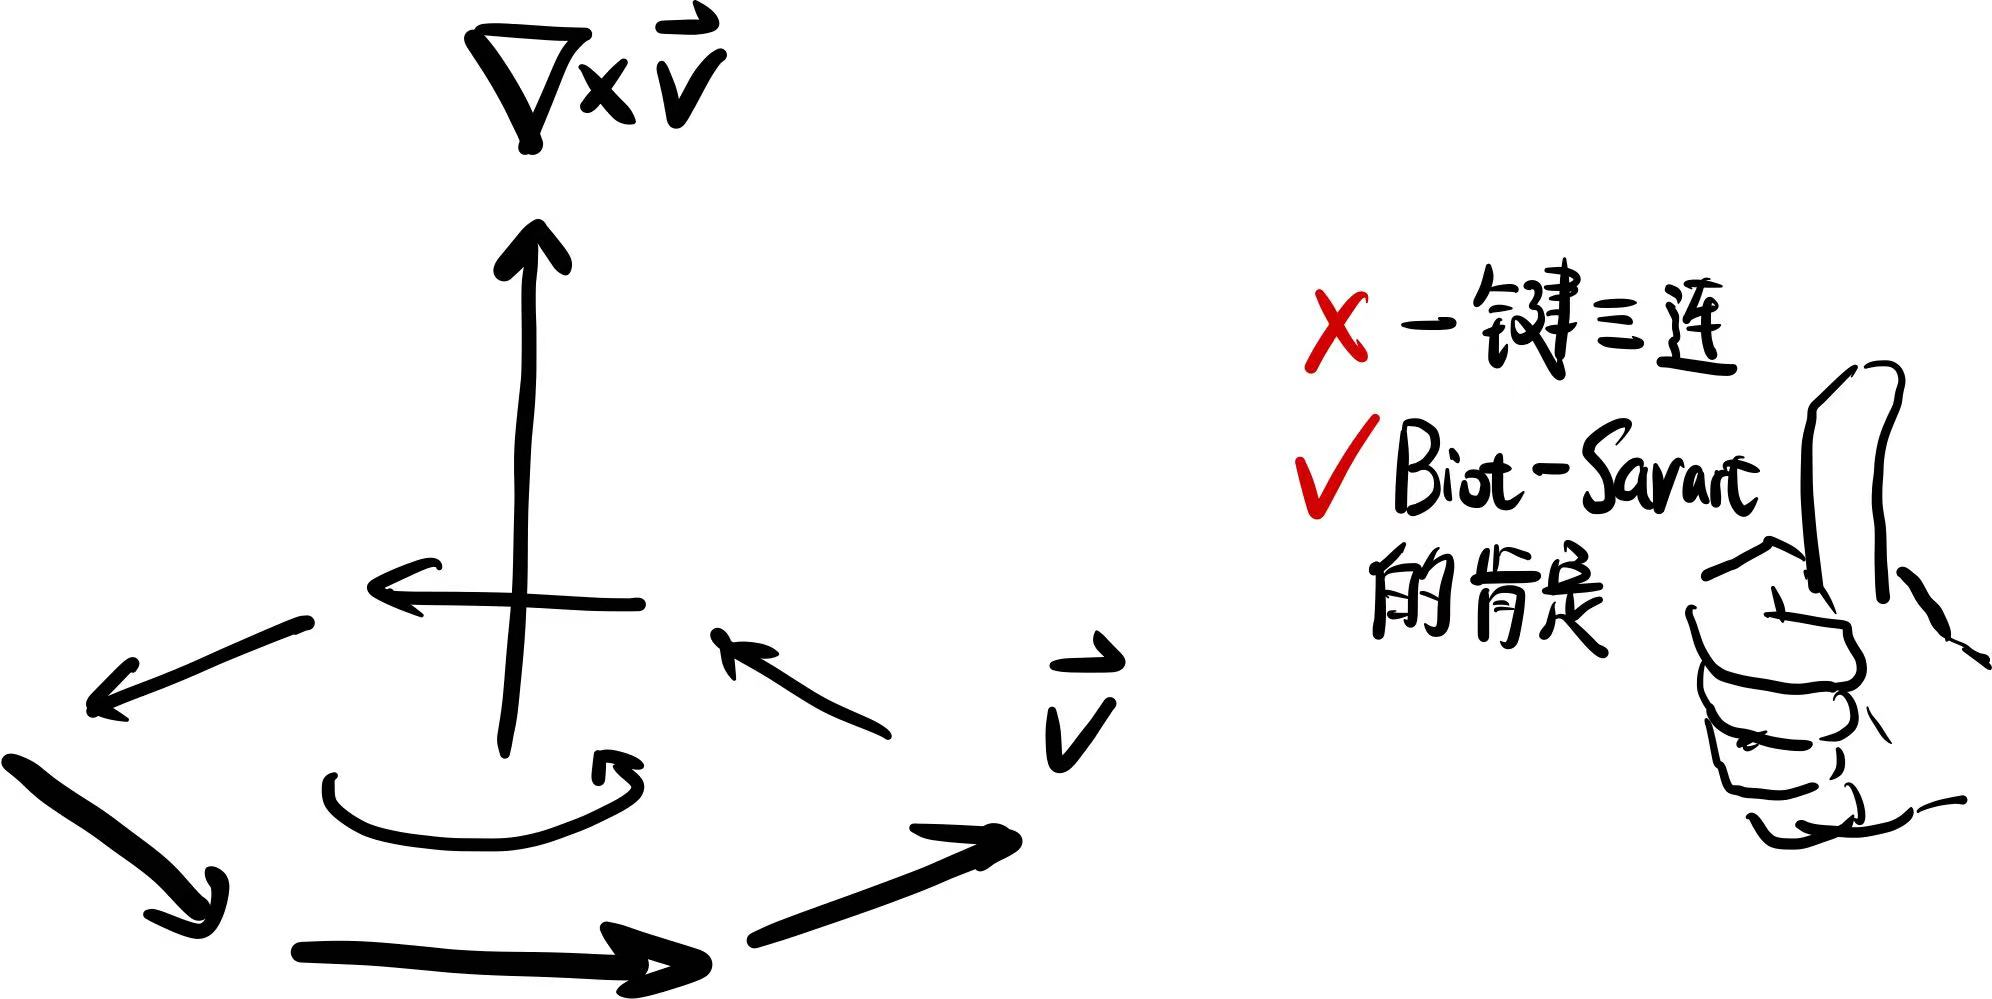 ∇×v⃗
v⃗
✗ 一键三连
✓ Biot-Savart
的肯定